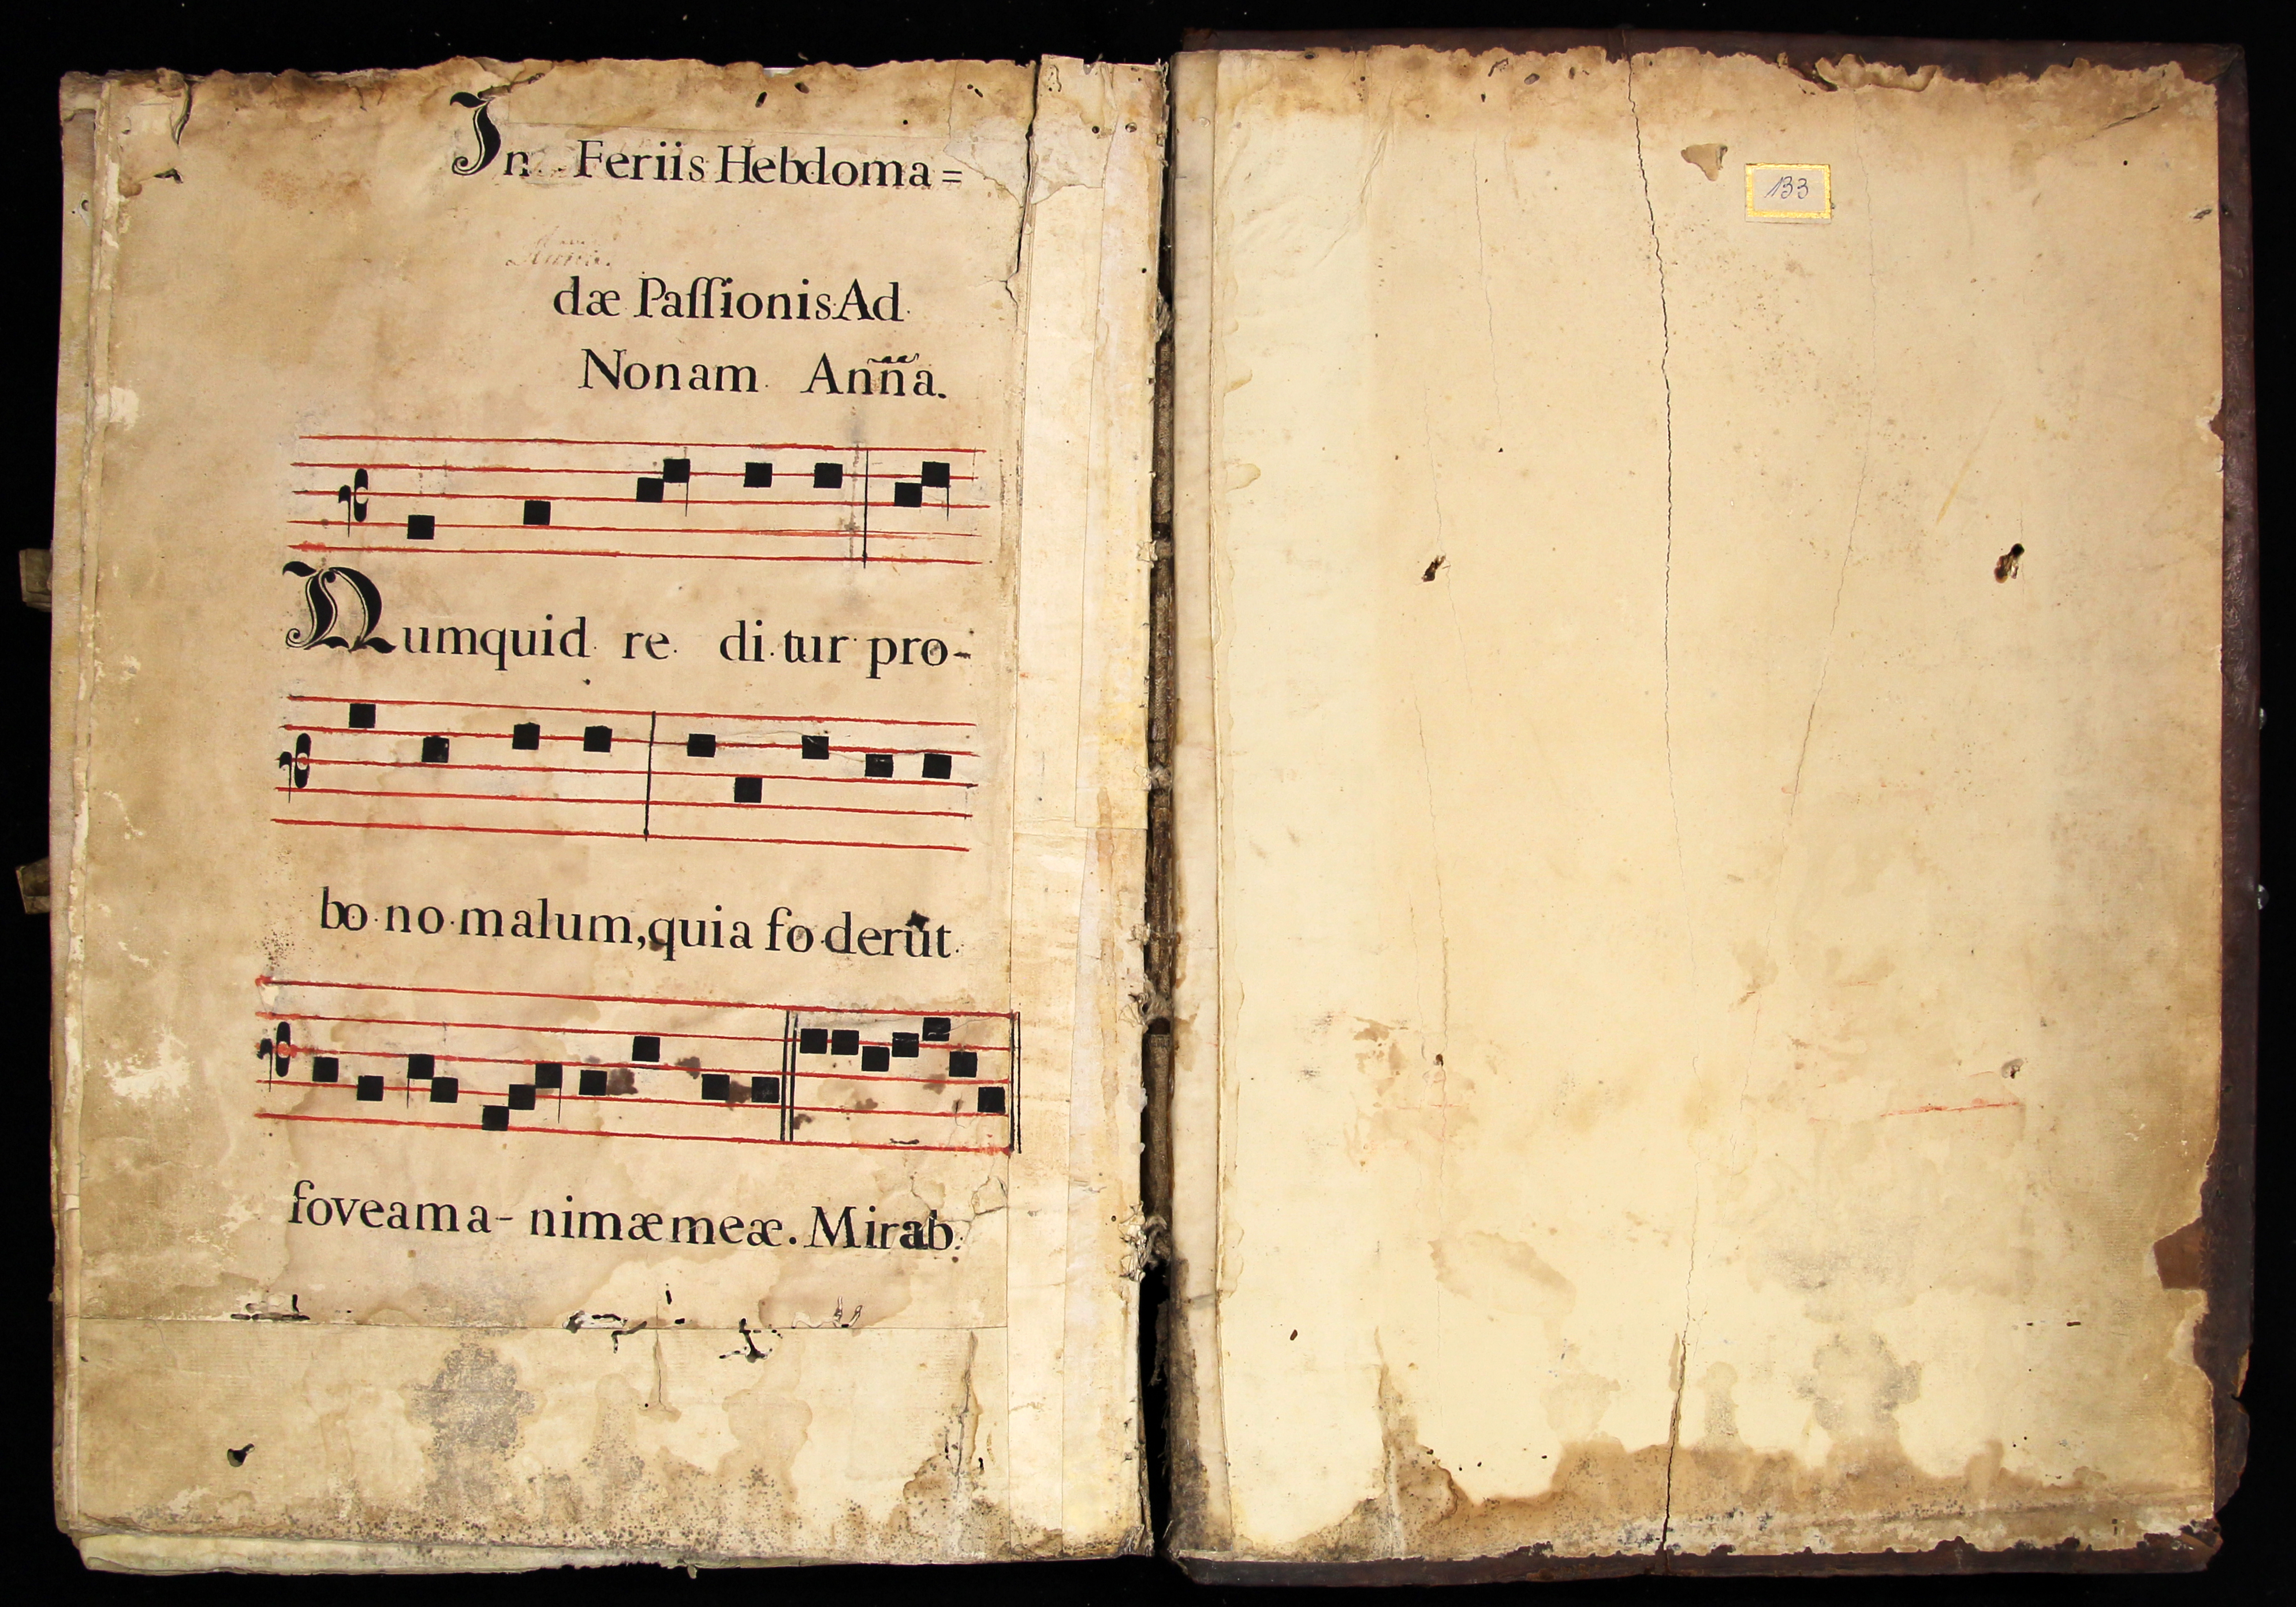 In Feriis Hebdoma=
dæ Paſſionis Ad
Nonam Añña.
Numquid re di tur pro-
bo no malum, quia fo derũt
foveam a- nimæ meæ. Mirab.
133